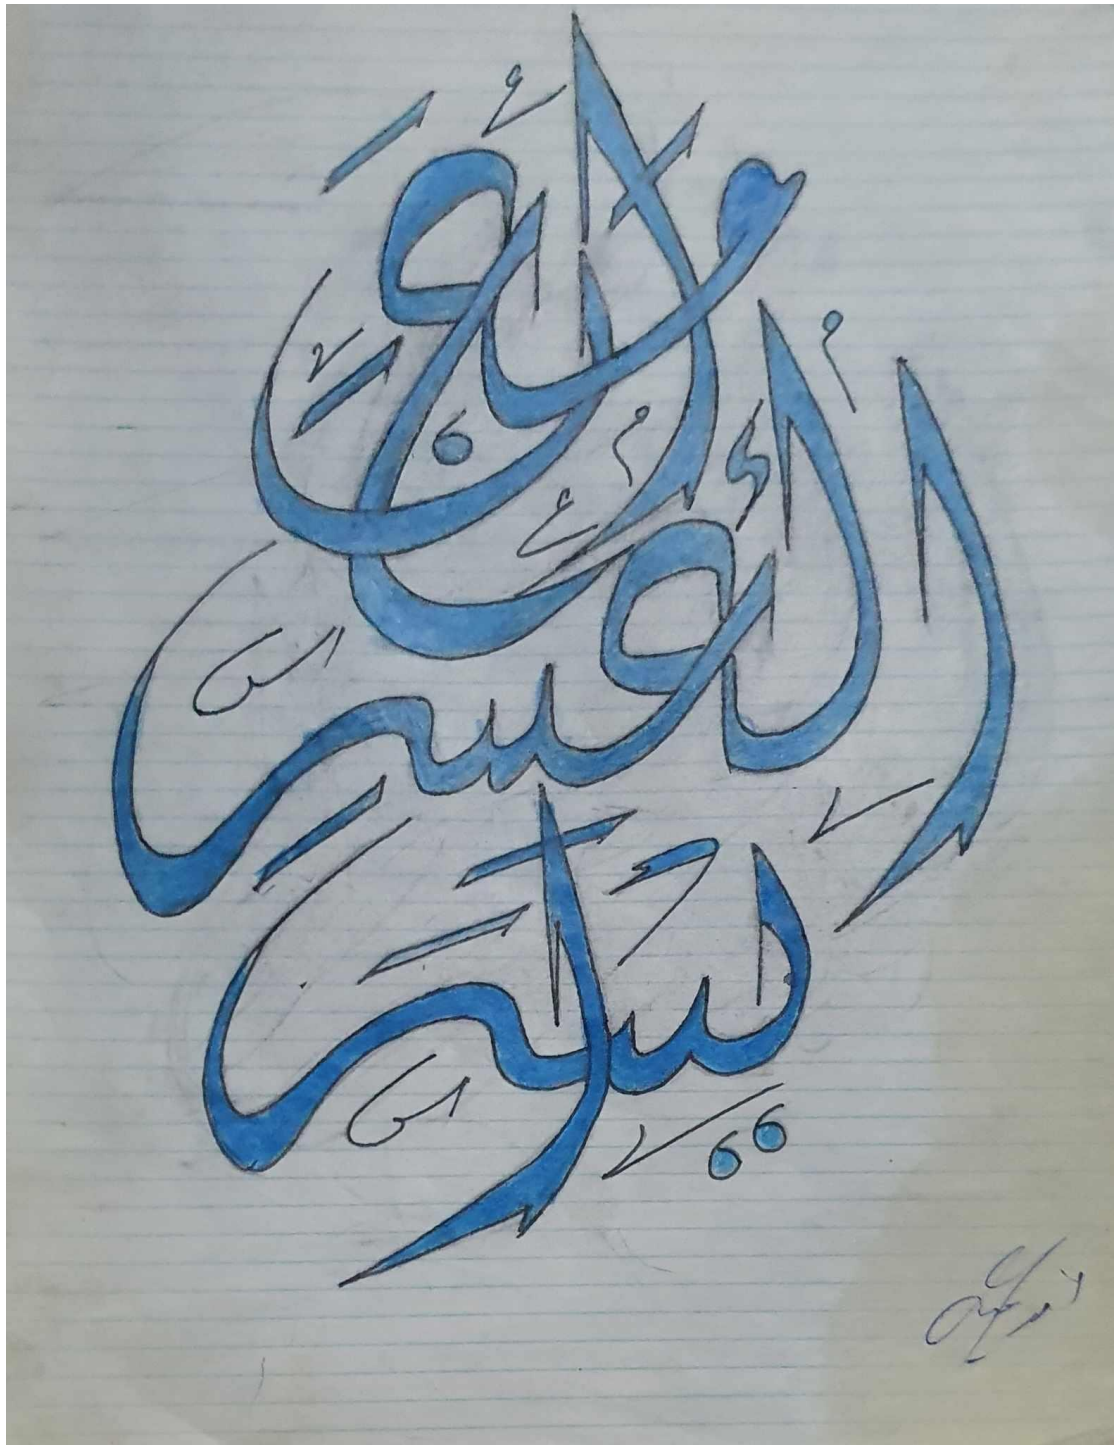 إن مع
العسر
يسرا